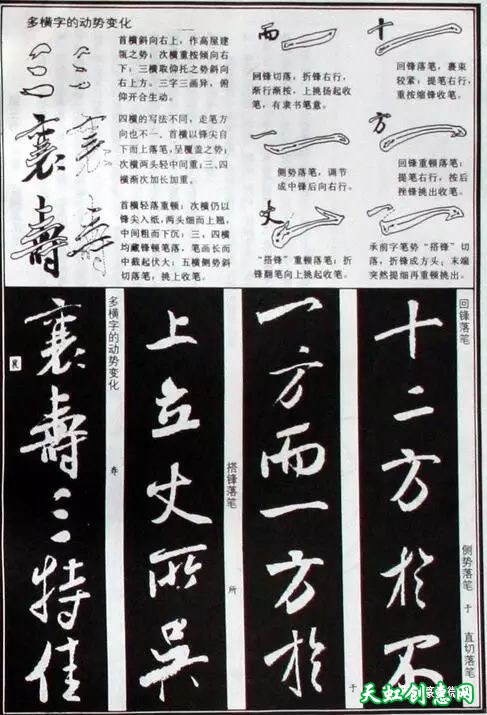 多横字的动势变化
首横斜向右上，作高屋建
瓴之势；次横重按倾向右
下；三横取仰托之势斜向
右上方。三字三画异，俯
仰开合生动。
襄
四横的写法不同，走笔方
向也不一。首横以锋尖自
下而上落笔，呈覆盖之势；
次横两头轻中间重；三、四
横渐次加长加重。
壽
首横轻落重顿；次横仍以
锋尖入纸，两头细而上翘，
中间粗而下沉；三、四横
均藏锋顿笔落，笔画长而
中截起伏大；五横侧势斜
切落笔，挑上收笔。
而
回锋切落，折锋右行，
渐行渐按，上挑扬起收
笔，有隶书笔意。
一
侧势落笔，调节
成中锋后向右行。
丈
“搭锋”重顿落笔；折
锋翻笔向上挑起收笔。
十
回锋落笔，裹束
较紧；提笔右行，
重按缩锋收笔。
方
回锋重顿落笔；
提笔右行，按后
挫锋挑出收笔。
承前字笔势“搭锋”切
落，折锋成方头；末端
突然提细再重顿挑出。
回锋落笔
十二方於不
侧势落笔
于
直切落笔
一方而一方於
于
搭锋落笔
上立丈所吳
所
多横字的动势变化
襄壽三特佳
寿
襄
天虹创意网